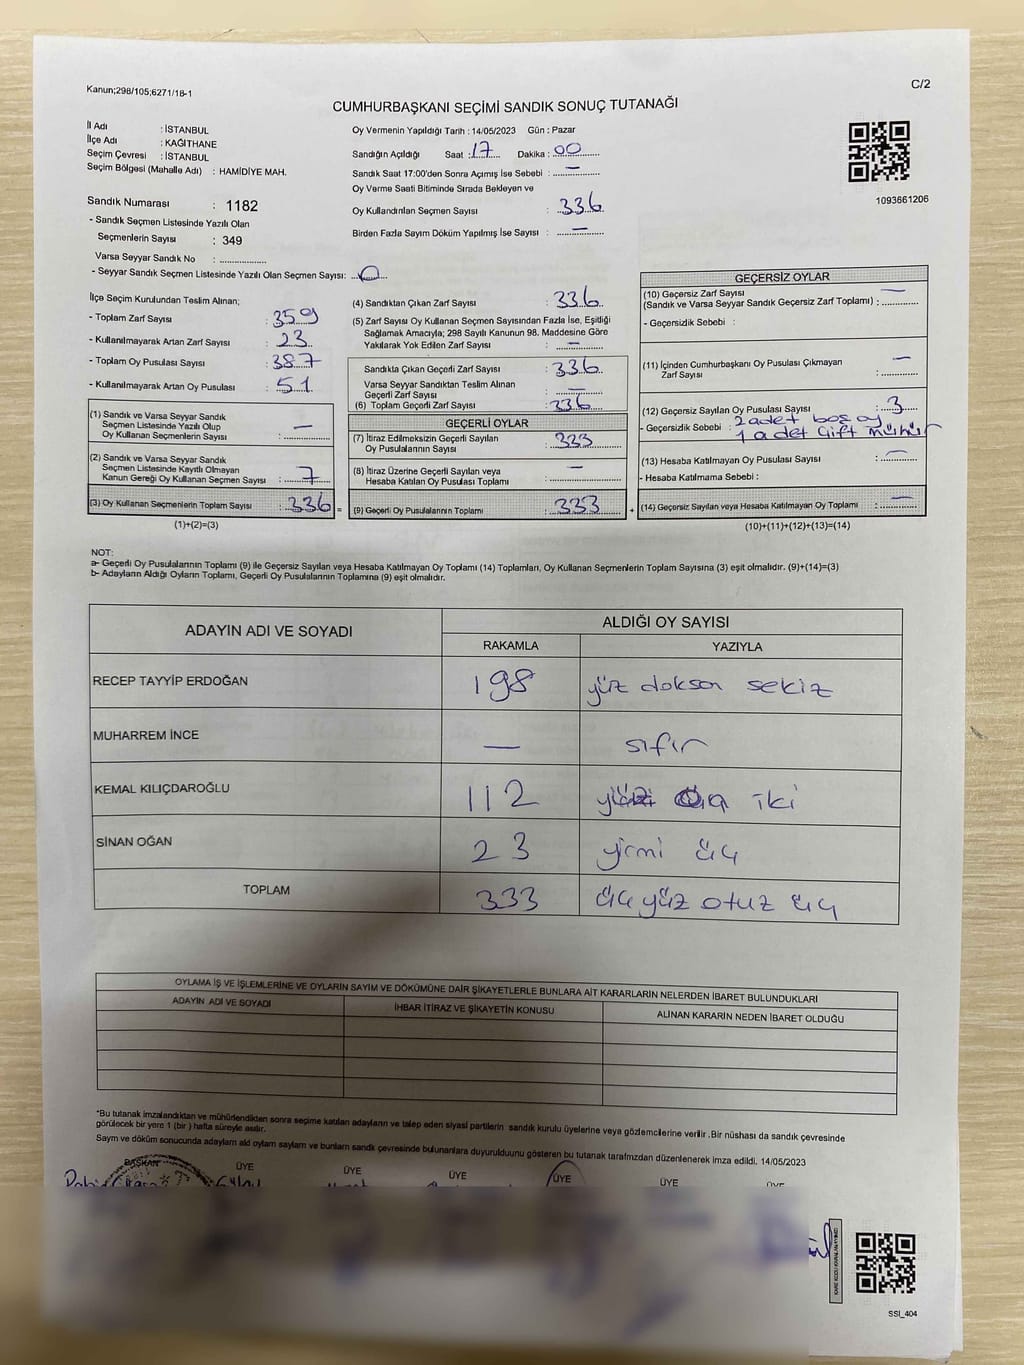 Kanun;298/105;6271/18-1
C/2
CUMHURBAŞKANI SEÇİMİ SANDIK SONUÇ TUTANAĞI
İl Adı : İSTANBUL
İlçe Adı : KAĞITHANE
Seçim Çevresi : İSTANBUL
Seçim Bölgesi (Mahalle Adı) : HAMİDİYE MAH.
Sandık Numarası : 1182
- Sandık Seçmen Listesinde Yazılı Olan
Seçmenlerin Sayısı : 349
Varsa Seyyar Sandık No : ....................
- Seyyar Sandık Seçmen Listesinde Yazılı Olan Seçmen Sayısı: 0
Oy Vermenin Yapıldığı Tarih : 14/05/2023 Gün : Pazar
Sandığın Açıldığı Saat : 17 Dakika : 00
Sandık Saat 17:00'den Sonra Açımış İse Sebebi : —
Oy Verme Saati Bitiminde Sırada Bekleyen ve
Oy Kullandırılan Seçmen Sayısı : 336
Birden Fazla Sayım Döküm Yapılmış İse Sayısı : —
1093661206
İlçe Seçim Kurulundan Teslim Alınan;
- Toplam Zarf Sayısı : 359
- Kullanılmayarak Artan Zarf Sayısı : 23
- Toplam Oy Pusulası Sayısı : 387
- Kullanılmayarak Artan Oy Pusulası : 51
(1) Sandık ve Varsa Seyyar Sandık
Seçmen Listesinde Yazılı Olup
Oy Kullanan Seçmenlerin Sayısı : —
(2) Sandık ve Varsa Seyyar Sandık
Seçmen Listesinde Kayıtlı Olmayan
Kanun Gereği Oy Kullanan Seçmen Sayısı : 7
(3) Oy Kullanan Seçmenlerin Toplam Sayısı : 336 =
(1)+(2)=(3)
(4) Sandıktan Çıkan Zarf Sayısı : 336
(5) Zarf Sayısı Oy Kullanan Seçmen Sayısından Fazla İse, Eşitliği
Sağlamak Amacıyla; 298 Sayılı Kanunun 98. Maddesine Göre
Yakılarak Yok Edilen Zarf Sayısı : —
Sandıkta Çıkan Geçerli Zarf Sayısı : 336
Varsa Seyyar Sandıktan Teslim Alınan
Geçerli Zarf Sayısı : —
(6) Toplam Geçerli Zarf Sayısı : 336
GEÇERLİ OYLAR
(7) İtiraz Edilmeksizin Geçerli Sayılan
Oy Pusulalarının Sayısı : 333
(8) İtiraz Üzerine Geçerli Sayılan veya
Hesaba Katılan Oy Pusulası Toplamı : —
(9) Geçerli Oy Pusulalarının Toplamı : 333 +
GEÇERSİZ OYLAR
(10) Geçersiz Zarf Sayısı
(Sandık ve Varsa Seyyar Sandık Geçersiz Zarf Toplamı) : —
- Geçersizlik Sebebi :
(11) İçinden Cumhurbaşkanı Oy Pusulası Çıkmayan
Zarf Sayısı : —
(12) Geçersiz Sayılan Oy Pusulası Sayısı : 3
- Geçersizlik Sebebi : 2 adet boş oy
1 adet çift mühür
(13) Hesaba Katılmayan Oy Pusulası Sayısı : —
- Hesaba Katılmama Sebebi :
(14) Geçersiz Sayılan veya Hesaba Katılmayan Oy Toplamı : —
(10)+(11)+(12)+(13)=(14)
NOT:
a- Geçerli Oy Pusulalarının Toplamı (9) ile Geçersiz Sayılan veya Hesaba Katılmayan Oy Toplamı (14) Toplamları, Oy Kullanan Seçmenlerin Toplam Sayısına (3) eşit olmalıdır. (9)+(14)=(3)
b- Adayların Aldığı Oyların Toplamı, Geçerli Oy Pusulalarının Toplamına (9) eşit olmalıdır.
ADAYIN ADI VE SOYADI
ALDIĞI OY SAYISI
RAKAMLA YAZIYLA
RECEP TAYYİP ERDOĞAN 198 yüz doksan sekiz
MUHARREM İNCE — sıfır
KEMAL KILIÇDAROĞLU 112 yüz on iki
SİNAN OĞAN 23 yirmi üç
TOPLAM 333 üç yüz otuz üç
OYLAMA İŞ VE İŞLEMLERİNE VE OYLARIN SAYIM VE DÖKÜMÜNE DAİR ŞİKAYETLERLE BUNLARA AİT KARARLARIN NELERDEN İBARET BULUNDUKLARI
ADAYIN ADI VE SOYADI İHBAR İTİRAZ VE ŞİKAYETİN KONUSU ALINAN KARARIN NEDEN İBARET OLDUĞU
*Bu tutanak imzalandıktan ve mühürlendikten sonra seçime katılan adayların ve talep eden siyasi partilerin sandık kurulu üyelerine veya gözlemcilerine verilir .Bir nüshası da sandık çevresinde
görülecek bir yere 1 (bir ) hafta süreyle asılır.
Sayım ve döküm sonucunda adayların aldı oyların sayıları ve bunların sandık çevresinde bulunanlara duyurulduunu gösteren bu tutanak tarafımzdan düzenlenerek imza edildi. 14/05/2023
BAŞKAN ÜYE ÜYE ÜYE ÜYE ÜYE ÜYE
SSI_404